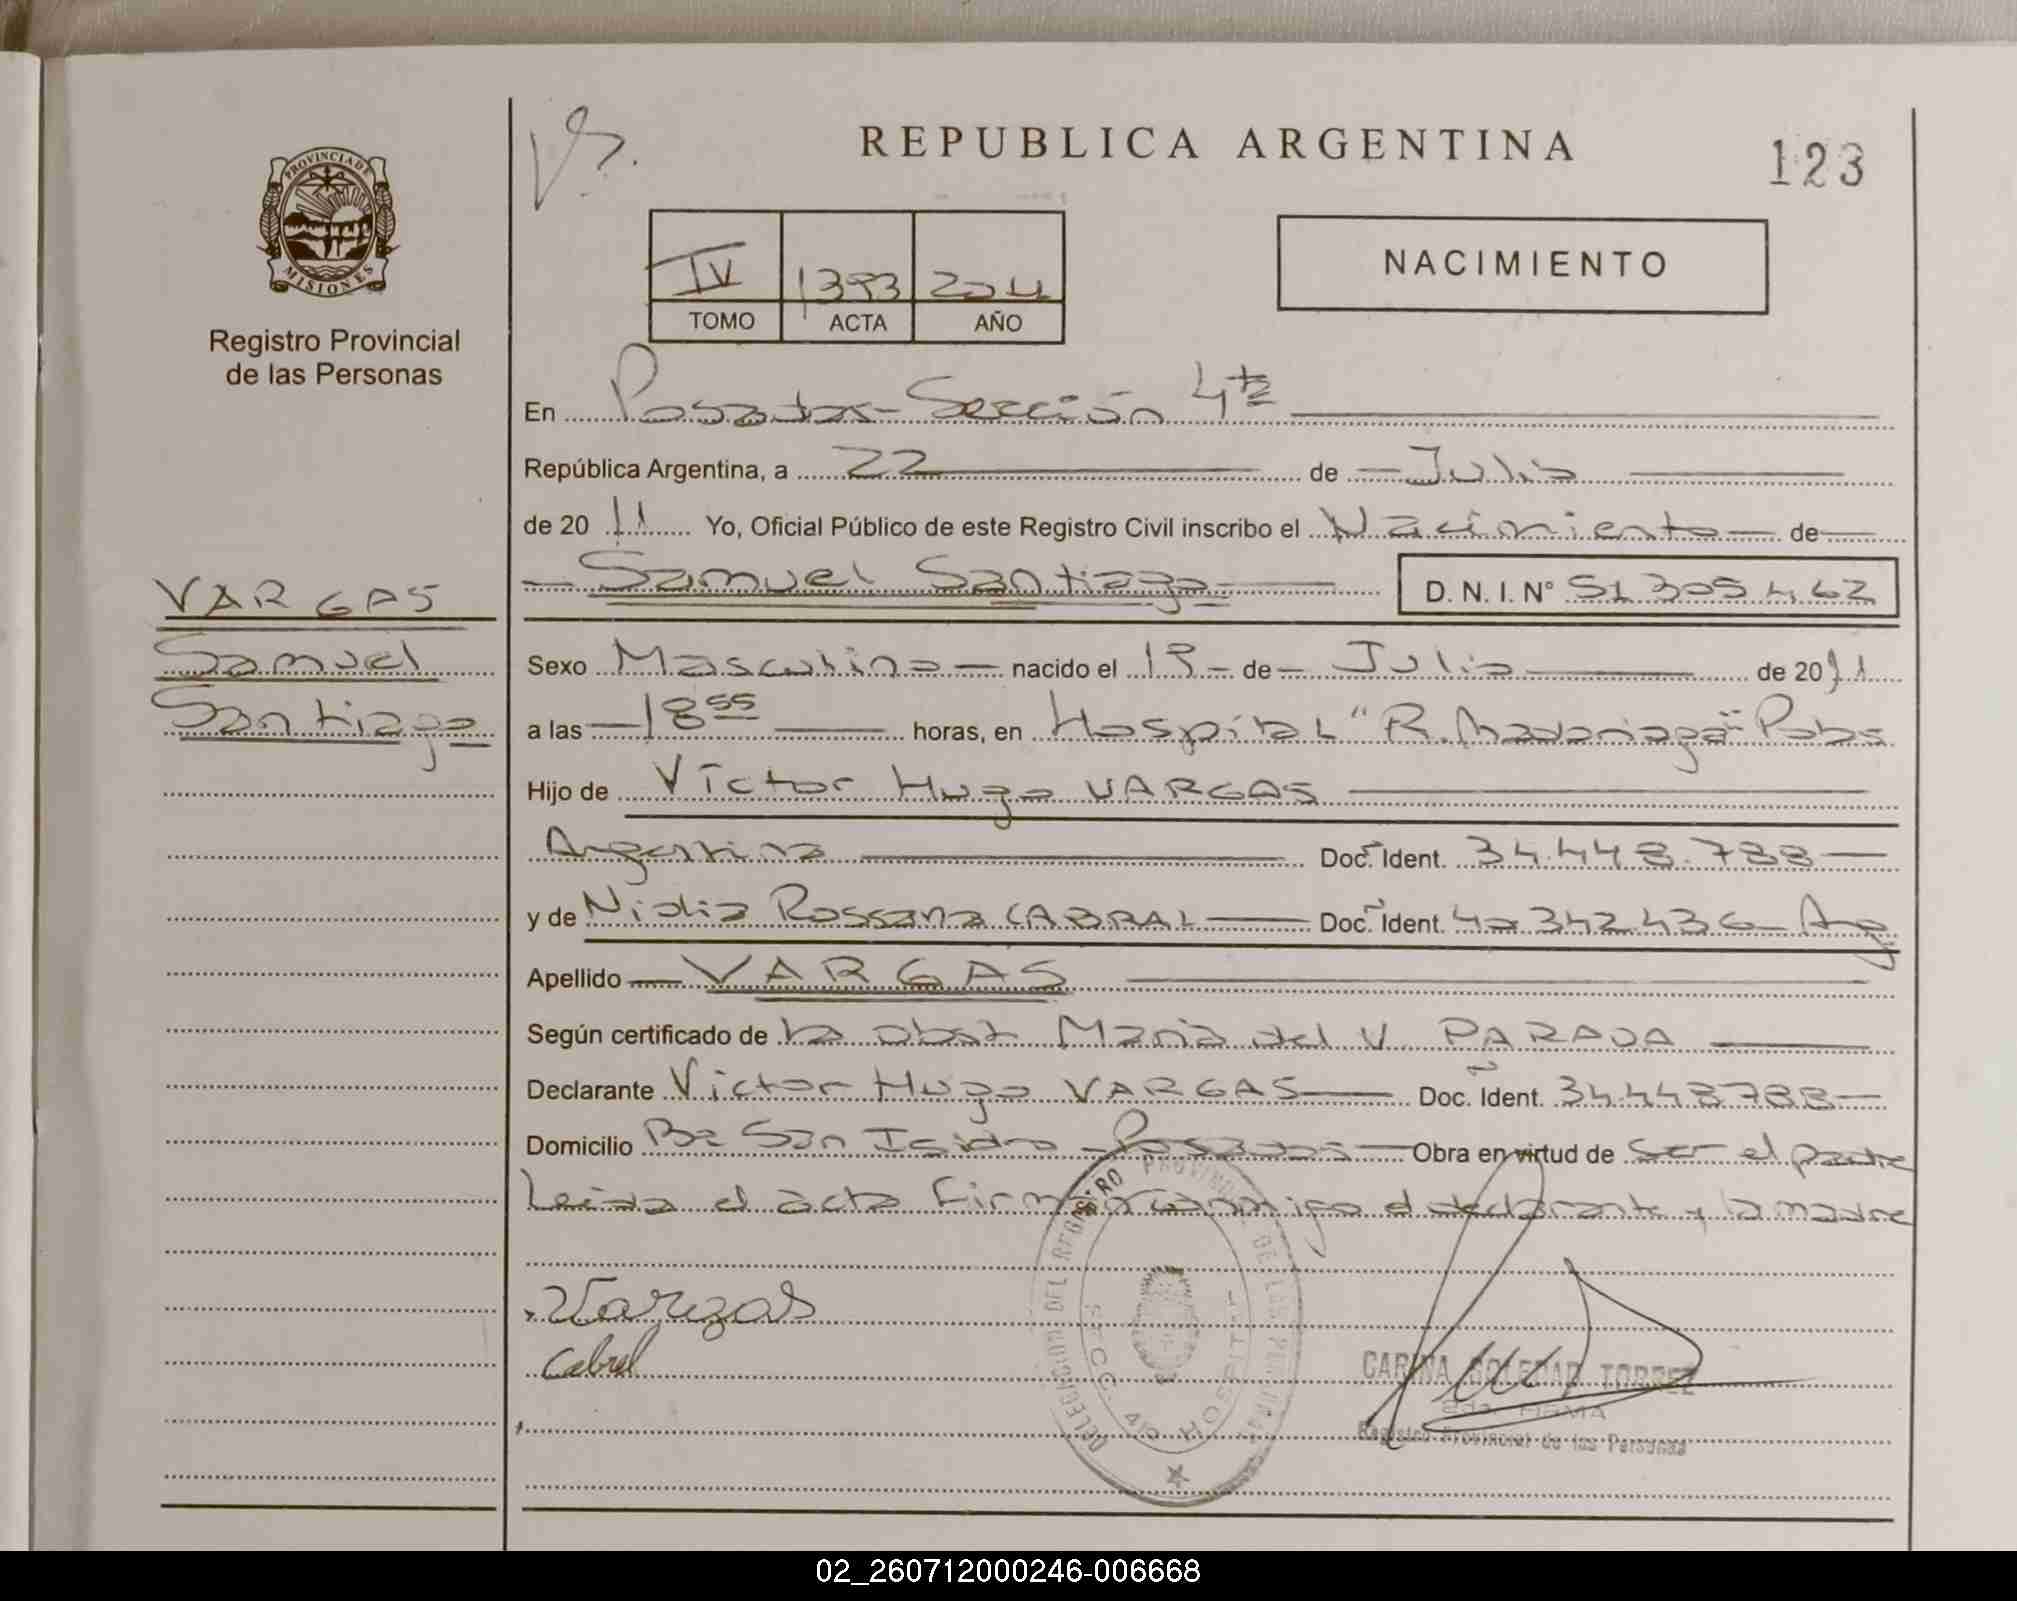 REPUBLICA ARGENTINA
123
PROVINCIA DE
MISIONES
Registro Provincial
de las Personas
IV 1393 2011
TOMO ACTA AÑO
NACIMIENTO
En Posadas - Sección 4ta
República Argentina, a 22 de Julio
de 2011 Yo, Oficial Público de este Registro Civil inscribo el Nacimiento de
Samuel Santiago D. N. I. Nº 51 305 462
VARGAS
Samuel
Santiago
Sexo Masculino nacido el de Julio de 2011
a las 18 55 horas, en Hospital "R. Madariaga" Pdas
Hijo de Victor Hugo VARGAS
Argentina Doc. Ident. 34.448.788
y de Nidia Rossana CABRAL Doc. Ident. 40 342 436 Arg
Apellido VARGAS
Según certificado de la obst Maria del V. PARADA
Declarante Victor Hugo VARGAS Doc. Ident. 34448788
Domicilio Bº San Isidro - Posadas Obra en virtud de ser el padre
Leída el acta firman conmigo el declarante y la madre
Vargas
Cabral
DELEGACION DEL REGISTRO PROVINCIAL DE LAS PERSONAS
SECC. 4ta HOSPITAL
CARINA SOLEDAD TORREZ
FIRMA
Registro Provincial de las Personas
02_260712000246-006668